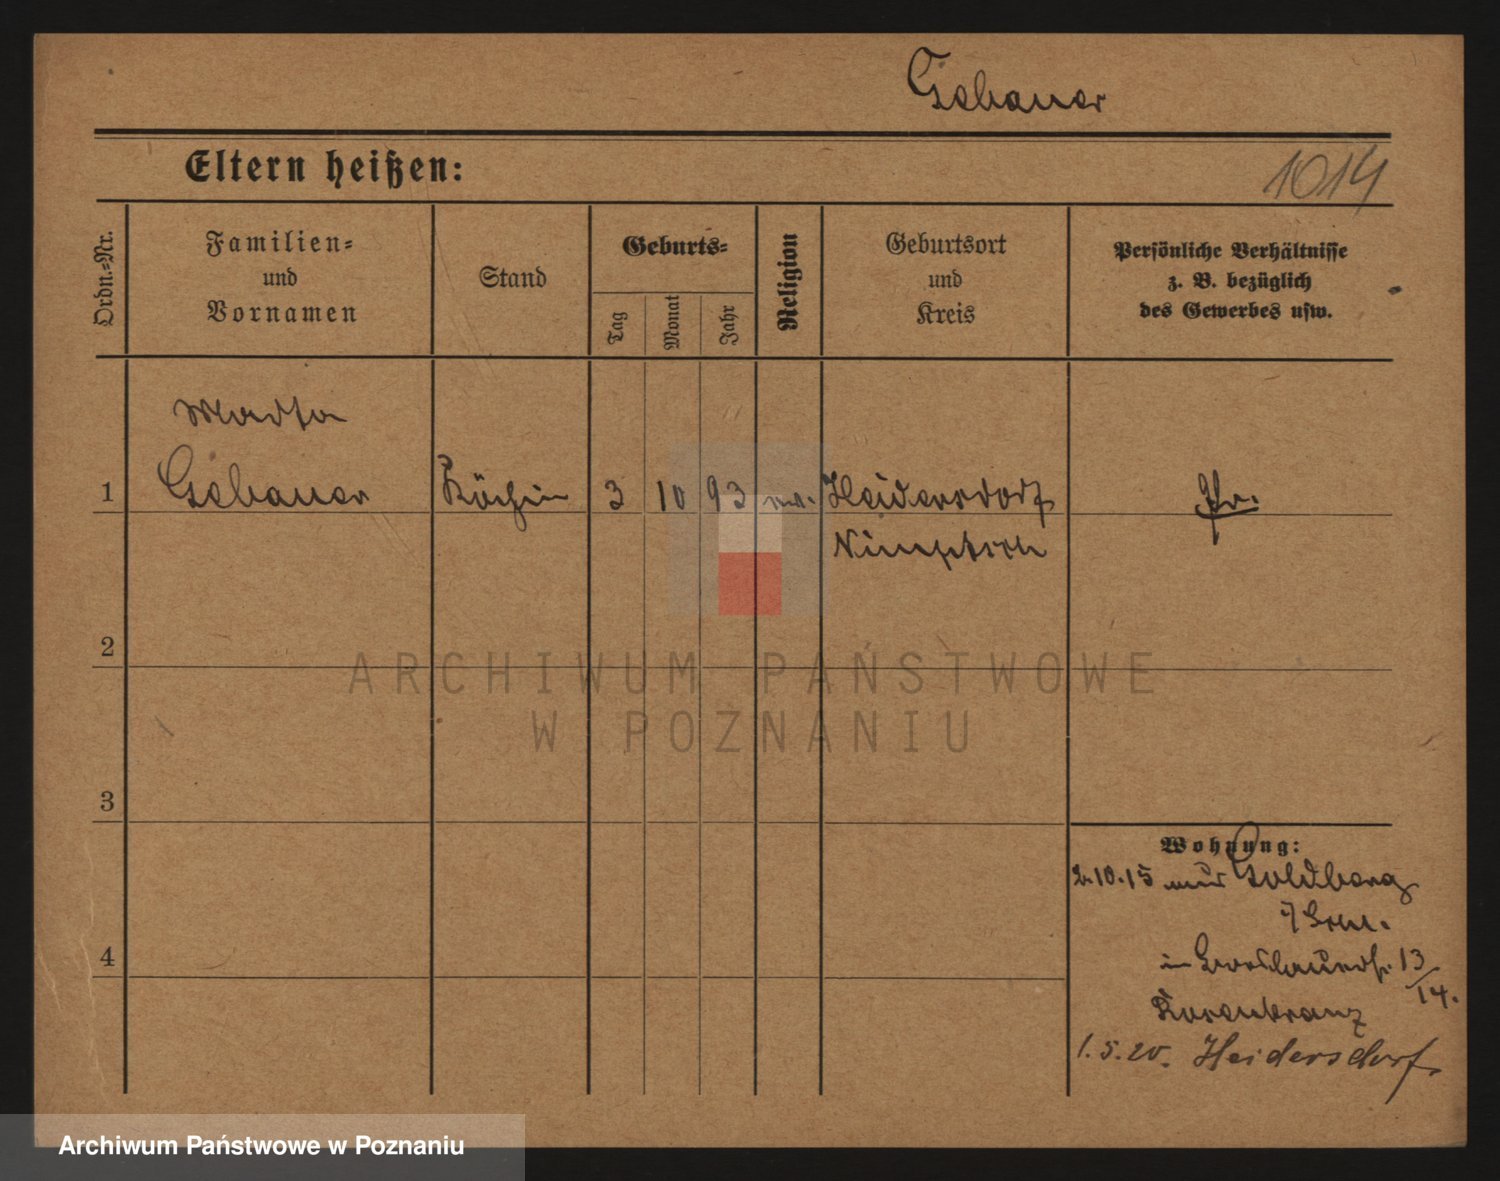 Gebauer
Eltern heißen:
1014
Ordn.=Nr.
Familien=
und
Vornamen
Stand
Geburts=
Tag
Monat
Jahr
Religion
Geburtsort
und
Kreis
Persönliche Verhältnisse
z. B. bezüglich
des Gewerbes usw.
Martha
1 Gebauer Köchin 3 10 93 Heidersdorf Pr.
Nimptsch
2
3
4
Wohnung:
2.10.15 aus Goldberg
in 13/14.
Rosenkranz
1.5.20. Heidersdorf
ARCHIWUM PAŃSTWOWE
W POZNANIU
Archiwum Państwowe w Poznaniu